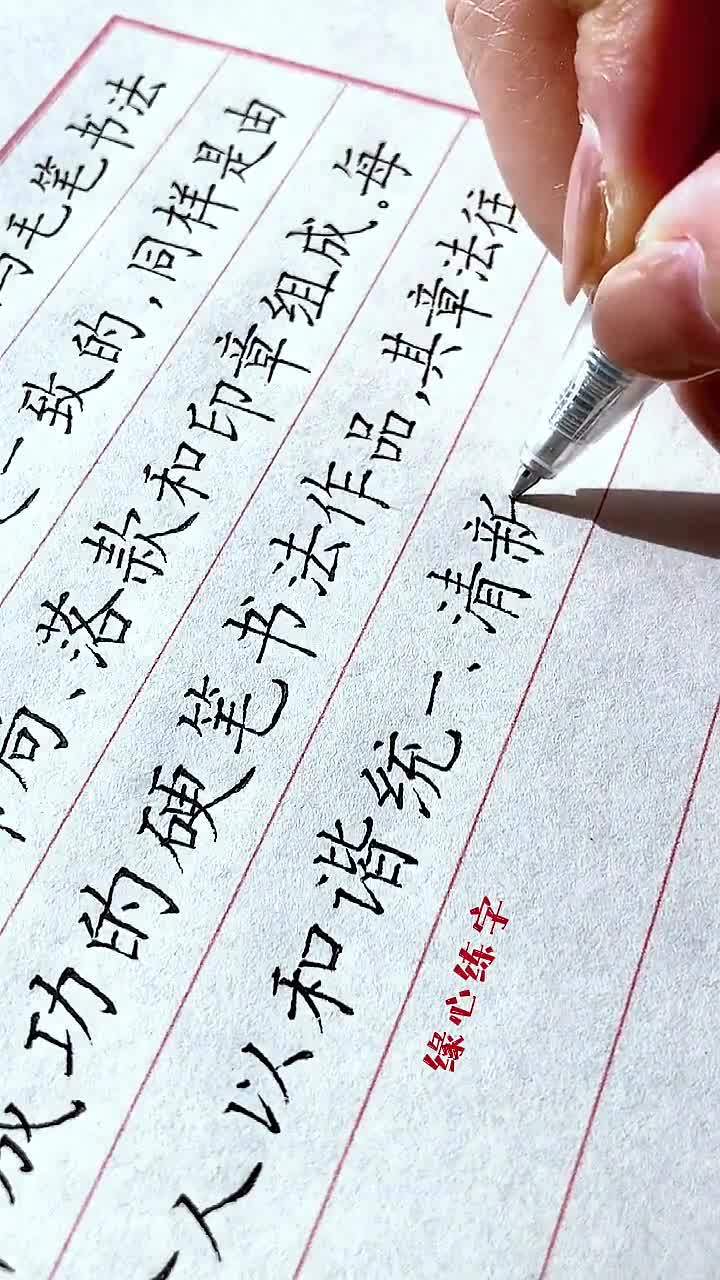 毛笔书法
一致的，同样是由
局、落款和印章组成。每
成功的硬笔书法作品，其章法往
人以和谐统一、清新
缘心练字